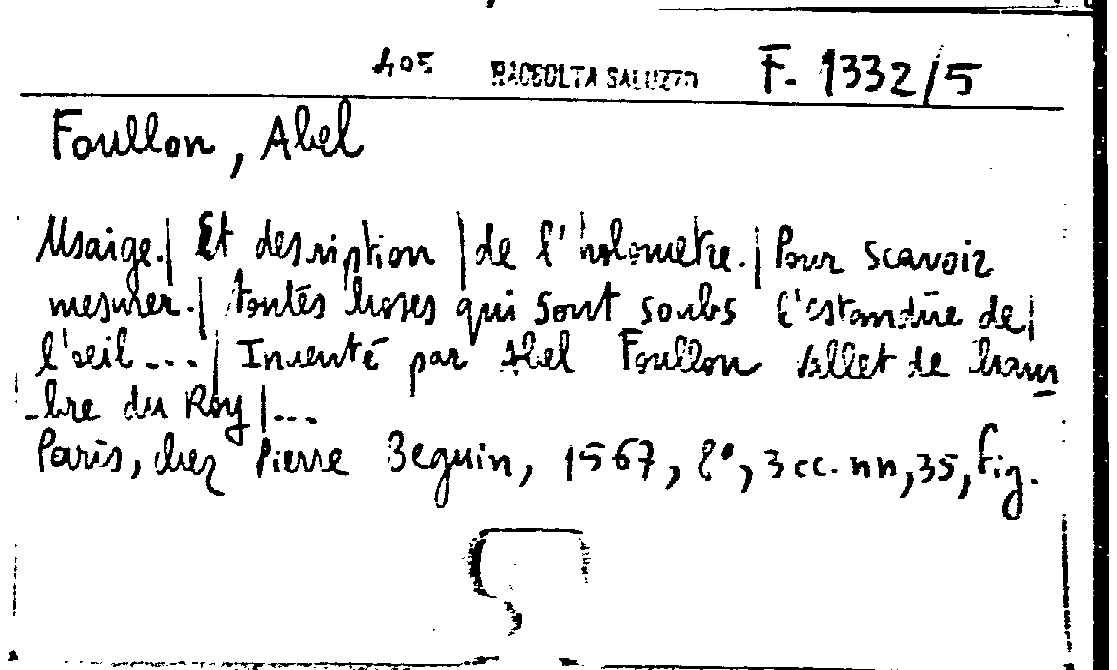 405 RACCOLTA SALUZZO F. 1332/5
Foullon, Abel
Usaige.| Et description |de l'holometre.| Pour scavoir
mesurer.| toutes choses qui sont soubs l'estandue de|
l'oeil...| Inuenté par Abel Foullon vallet de cham
-bre du Roy|...
Paris, chez Pierre Beguin, 1567, 8°, 3 cc. nn, 35, fig.